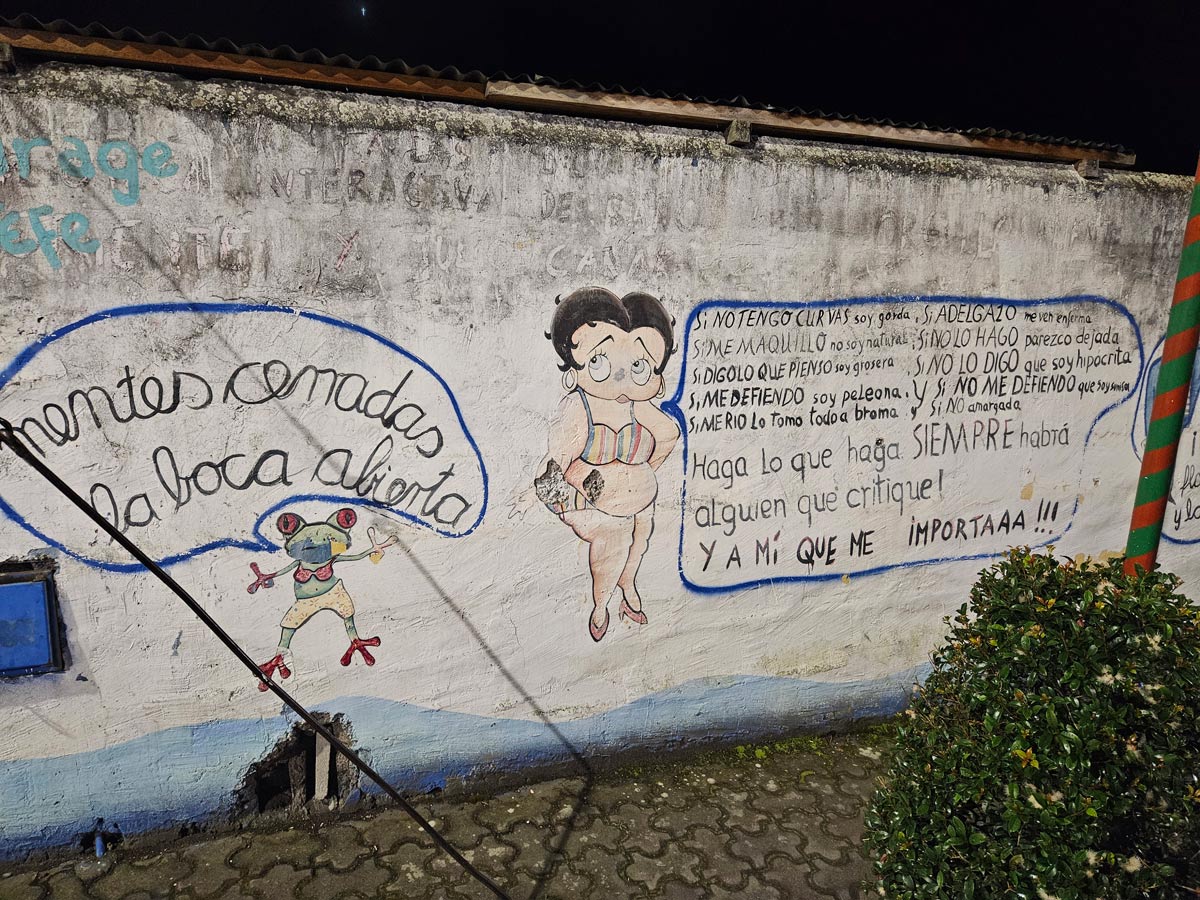 arage
efe
INTERACTIVA DEL BAÑO
mentes cerradas
la boca abierta
Si NO TENGO CURVAS soy gorda, Si ADELGAZO me ven enferma
Si ME MAQUILLO no soy natural, Si NO LO HAGO parezco dejada
Si DIGO LO QUE PIENSO soy grosera, Si NO LO DIGO que soy hipocrita
Si ME DEFIENDO soy peleona, Y Si NO ME DEFIENDO que soy sumisa
Si ME RIO Lo Tomo Todo a broma y Si NO amargada
Haga lo que haga SIEMPRE habrá
alguien que critique!
Y A MÍ QUE ME iMPORTAAA!!!
y la